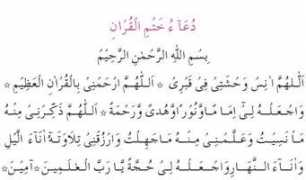 دُعَآءُ خَتْمِ الْقُرْاٰنِ
بِسْمِ اللّٰهِ الرَّحْمٰنِ الرَّحِيْمِ
اَللّٰهُمَّ اٰنِسْ وَحْشَتِىْ فِىْ قَبْرِىْ * اَللّٰهُمَّ ارْحَمْنِىْ بِالْقُرْاٰنِ الْعَظِيْمِ *
وَاجْعَلْهُ لِىْ اِمَامًا وَّنُوْرًا وَّهُدًى وَّرَحْمَةً * اَللّٰهُمَّ ذَكِّرْنِىْ مِنْهُ
مَا نَسِيْتُ وَعَلِّمْنِىْ مِنْهُ مَا جَهِلْتُ وَارْزُقْنِىْ تِلَاوَتَهٗ اٰنَآءَ الَّيْلِ
وَاٰنَآءَ النَّهَارِ وَاجْعَلْهُ لِىْ حُجَّةً يَّا رَبَّ الْعٰلَمِيْنَ * اٰمِيْنَ *